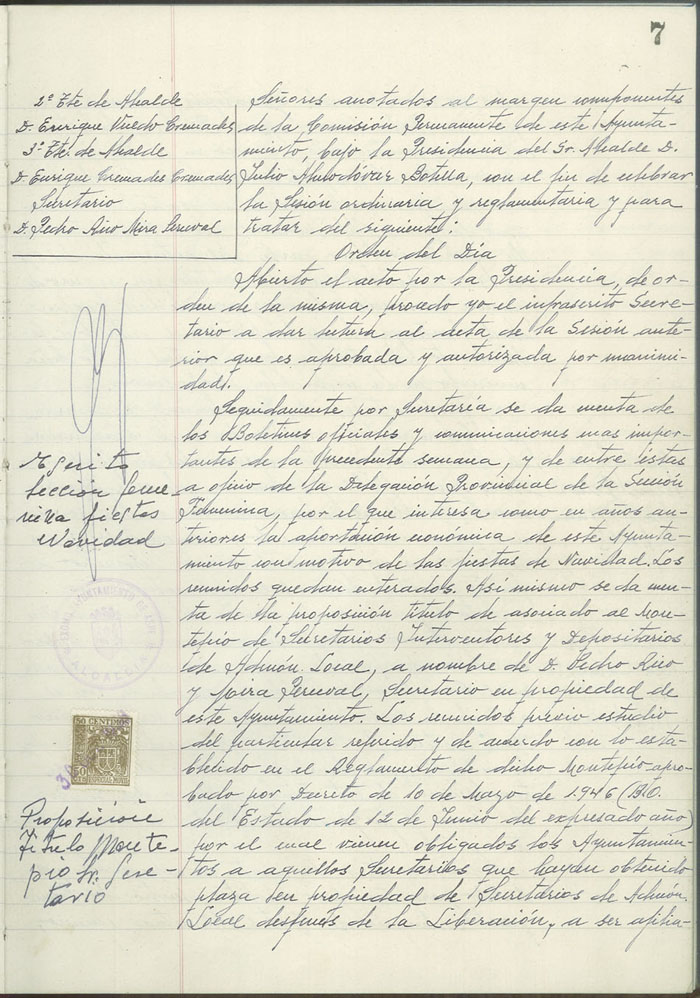 7
2º Tte de Alcalde
D. Enrique Vuedo Cremades
3º Tte. de Alcalde
D. Enrique Cremades Cremades
Secretario
D. Pedro Rico Mira Perceval
Señores anotados al margen componentes
de la Comisión Permanente de este Ayunta-
miento, bajo la Presidencia del Sr. Alcalde D.
Julio Almodóvar Botella, con el fin de celebrar
la Sesión ordinaria y reglamentaria y para
tratar del siguiente:
Orden del Día
Abierto el acto por la Presidencia, de or-
den de la misma, procedo yo el infrascrito Secre-
tario a dar lectura al acta de la Sesión ante-
rior que es aprobada y autorizada por unanimi-
dad.
Seguidamente por Secretaría se da cuenta de
los Boletines oficiales y comunicaciones mas impor-
tantes de la precedente semana, y de entre éstas
a oficio de la Delegación Provincial de la Sección
Femenina, por el que interesa como en años an-
teriores la aportación económica de este Ayunta-
miento con motivo de las fiestas de Navidad. Los
reunidos quedan enterados. Así mismo se da cuen-
ta de la proposición título de asociado al Mon-
tepio de Secretarios Interventores y Depositarios
de Admón. Local, a nombre de D. Pedro Rico
y Mira Perceval, Secretario en propiedad de
este Ayuntamiento. Los reunidos previo estudio
del particular referido y de acuerdo con lo esta-
blecido en el Reglamento de dicho Montepio apro-
bado por Decreto de 10 de Mayo de 1.946 (B.O.
del Estado de 12 de Junio del expresado año)
por el cual vienen obligados los Ayuntamien-
tos a aquellos Secretarios que hayan obtenido
plaza en propiedad de Secretarios de Admón.
Local despues de la Liberación, a ser afilia-
Escrito
sección feme-
nina fiestas
Navidad
ALCALDIA
50 CENTIMOS
ESPECIAL MOVIL
Proposición
Título Monte-
pio Sr. Secre-
tario